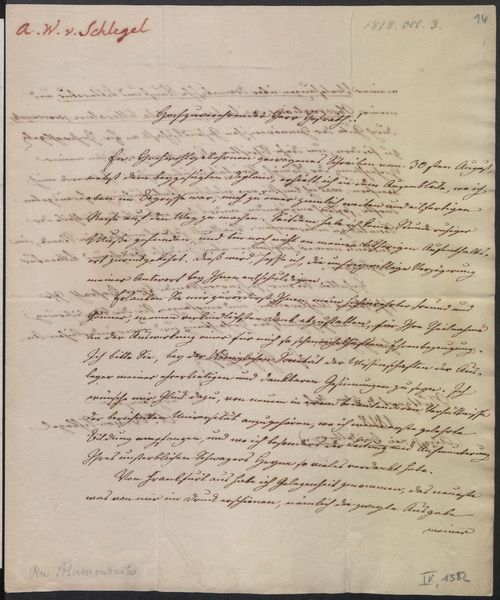 A. W. v. Schlegel
1818. Oct. 3.
14
Hochzuverehrender Herr Hofrath!
Ew. Hochwohlgebohren geneigtes Schreiben vom 30sten August
nebst dem beygefügten Diplom, erhielt ich in dem Augenblicke, wo ich
eben im Begriffe war, mich zu einer ziemlich weiten und eilfertigen
Reise auf den Weg zu machen. Seitdem habe ich keine Stunde ruhiger
Muße gefunden, und bin noch nicht an meinen bisherigen Aufenthalts-
ort zurückgekehrt. Dieß wird, hoffe ich, die unfreywillige Verzögerung
meiner Antwort bey Ihnen entschuldigen.
Erlauben Sie mir zuvörderst Ihnen, mein Freund und
Gönner, meinen verbindlichsten Dank abzustatten, für Ihre Theilnahme
an der Auswirkung einer für mich so schmeichelhaften Ehrenbezeugung.
Ich bitte Sie, bey der Königlichen Societät der Wissenschaften der Aus-
leger meiner ehrerbietigen und dankbaren Gesinnungen zu seyn. Ich
wünsche mir Glück dazu, von neuem in einem Verhältnisse
der berühmten Universität anzugehören, wo ich meine erste gelehrte
Bildung empfangen, und wo ich besonders der Leitung und Aufmunterung
Ihres unsterblichen Schwagers Heyne so vieles verdankt habe.
Von Frankfurt aus habe ich Gelegenheit genommen, das neueste
was von mir im Druck erschienen, nämlich die zweyte Ausgabe
meiner
An Blumenbach
IV, 1582